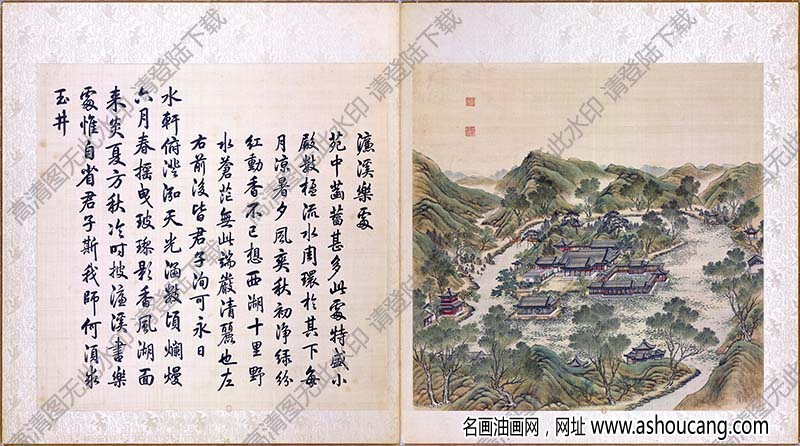 濂溪樂處
苑中菡萏甚多此處特盛小
殿數楹流水周環於其下每
月涼暑夕風爽秋初淨綠紛
紅動香不已想西湖十里野
水蒼茫無此端嚴清麗也左
右前後皆君子洵可永日
水軒俯澄泓天光涵數頃爛熳
六月春搖曳玻瓈影香風湖面
来炎夏方秋冷时披濂溪書樂
處惟自省君子斯我師何須求
玉井
高清图无此水印 请登陆下载
名画油画网，网址 www.ashoucang.com